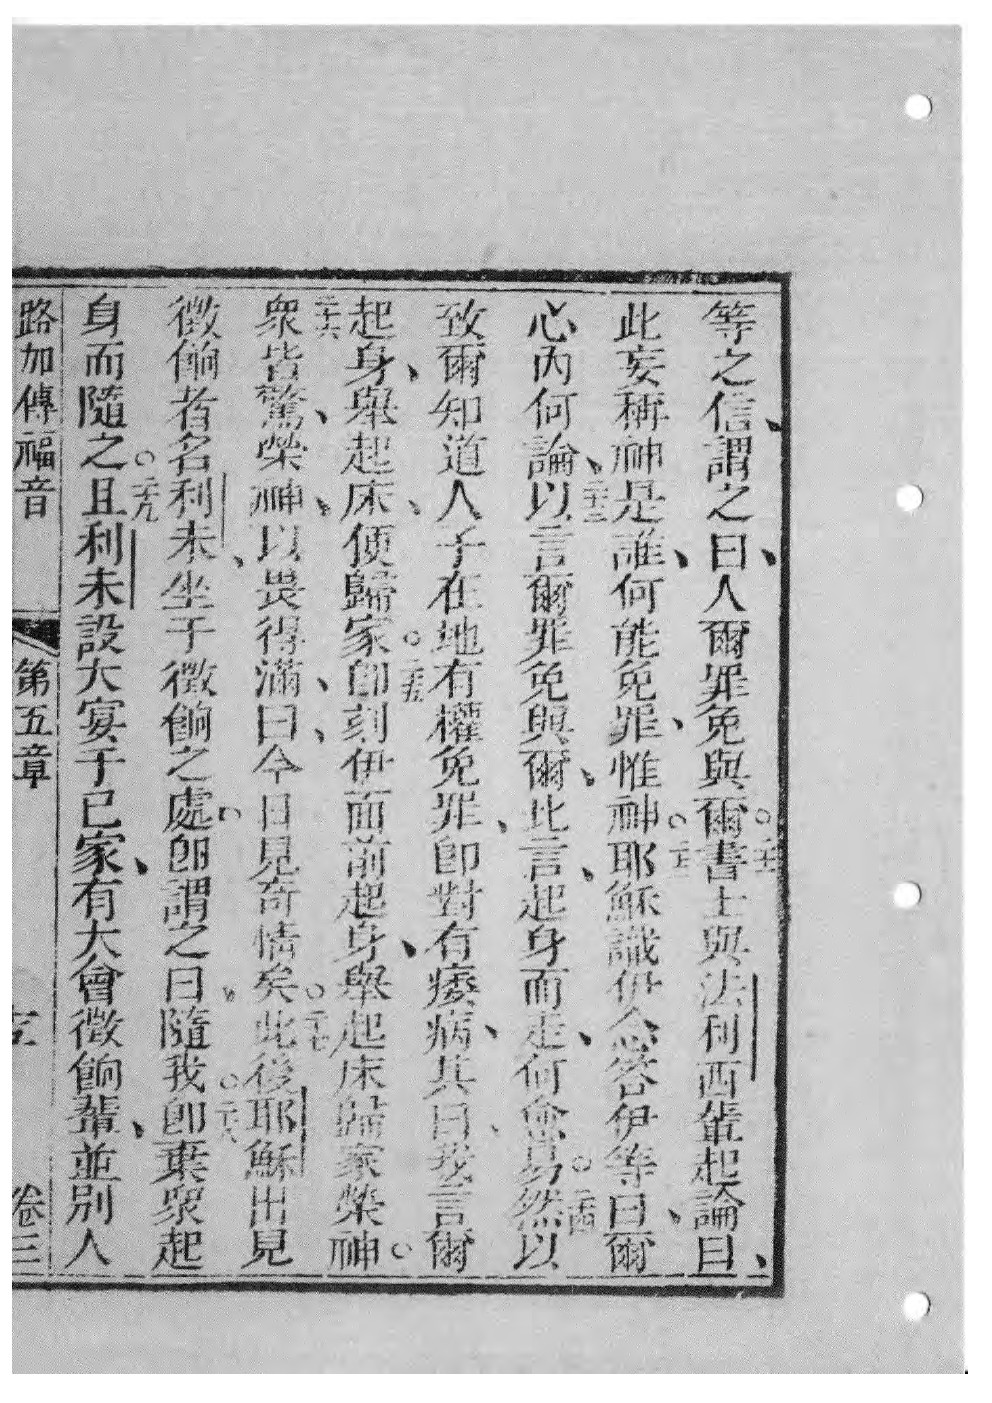 等之信、謂之曰、人爾罪免與爾。二十一書士與法利西輩起論曰、
此妄稱神是誰、何能免罪、惟神。二十二耶穌識伊念答伊等曰、爾
心內何論、二十三以言爾罪免與爾、比言、起身而走、何愈易。二十四然以
致爾知道人子在地有權免罪、即對有痿病、其曰、我言爾
起身、舉起床、便歸家。二十五即刻伊面前起身、舉起床歸家榮神。
二十六衆皆驚、榮神、以畏得滿、曰、今日見奇情矣。二十七此後耶穌出見
徵餉者名利未、坐于徵餉之處、即謂之曰、隨我。二十八即棄衆起
身而隨之。二十九且利未設大宴于己家、有大會徵餉輩、並別人
路加傳福音 第五章 卷三